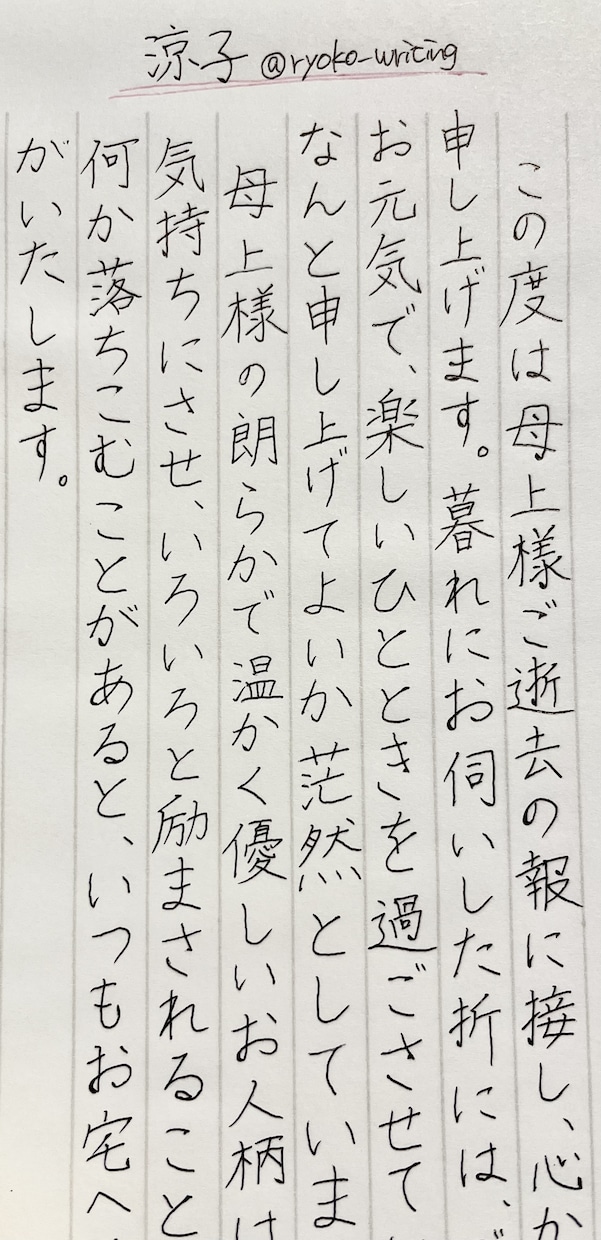 涼子 @ryoko_writing
この度は母上様ご逝去の報に接し、心か
申し上げます。暮れにお伺いした折には、
お元気で、楽しいひとときを過ごさせて
なんと申し上げてよいか茫然としていま
母上様の朗らかで温かく優しいお人柄は
気持ちにさせ、いろいろと励まされること
何か落ちこむことがあると、いつもお宅へ
がいたします。